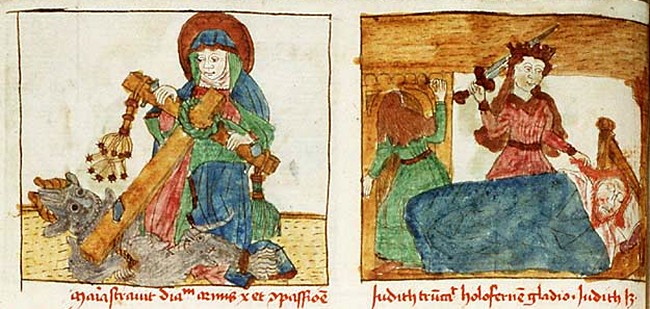 Maria stravit dia^m armis x et ꝯpassiõe
Judith trũcat holofernẽ gladio · Judith